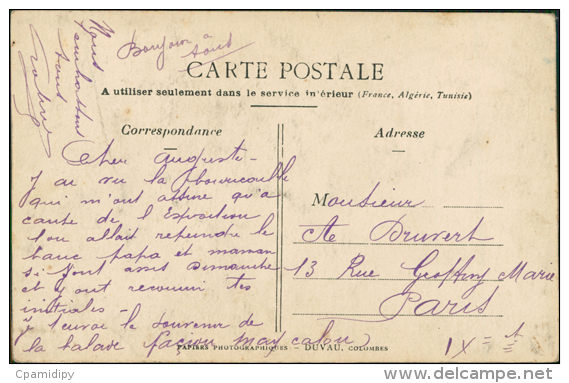 Bonjour à
tous
Nous
tous
CARTE POSTALE
A utiliser seulement dans le service in'érieur (France, Algérie, Tunisie)
Correspondance
Adresse
Cher Auguste -
J'ai vu la
qui m'ont assuré qu'a
cause de l'Exposition
l'on allait repeindre le
banc papa et maman
si sont assis Dimanche
et y ont reconnu tes
initiales -
le souvenir de
la balade
Monsieur
Ate Druvert
13 Rue Geoffroy Marie
Paris
IX
PAPIERS PHOTOGRAPHIQUES - DUVAU, COLOMBES
© Cpamidipy
delcampe.net